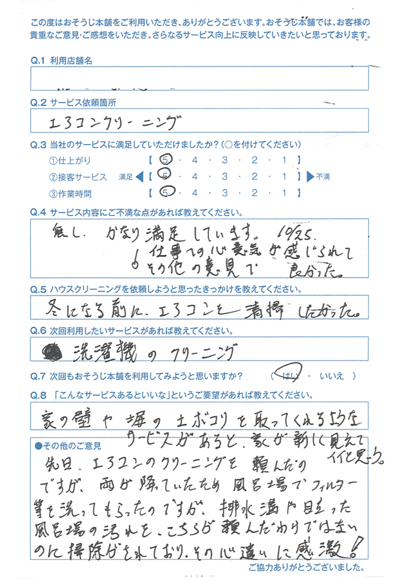 この度はおそうじ本舗をご利用いただき、ありがとうございます。おそうじ本舗では、お客様の
貴重なご意見・ご感想をいただき、さらなるサービス向上に反映していきたいと思っております。
Q.1 利用店舗名
Q.2 サービス依頼箇所
エアコンクリーニング
Q.3 当社のサービスに満足していただけましたか?(○を付けてください)
①仕上がり 【 5 ・ 4 ・ 3 ・ 2 ・ 1 】
②接客サービス 満足 ◀【 5 ・ 4 ・ 3 ・ 2 ・ 1 】▶ 不満
③作業時間 【 5 ・ 4 ・ 3 ・ 2 ・ 1 】
Q.4 サービス内容にご不満な点があれば教えてください。
無し。かなり満足しています。10/25.
仕事での心意気が感じられて
その他の意見で 良かった。
Q.5 ハウスクリーニングを依頼しようと思ったきっかけを教えてください。
冬になる前に、エアコンを清掃したかった。
Q.6 次回利用したいサービスがあれば教えてください。
洗濯機のクリーニング
Q.7 次回もおそうじ本舗を利用してみようと思いますか? ( はい ・ いいえ )
Q.8 「こんなサービスあるといいな」というご要望があれば教えてください。
家の壁や塀の土ボコリを取ってくれるような
サービスがあると、家が新しく見えて
イイと思う。
●その他のご意見
先日、エアコンのクリーニングを頼んだの
ですが、雨が降っていたため風呂場でフィルター
等を洗ってもらったのですが、排水溝や目立った
風呂場の汚れを、こちらが頼んだわけではない
のに掃除がされており、その心遣いに感激!
ご協力ありがとうございました。